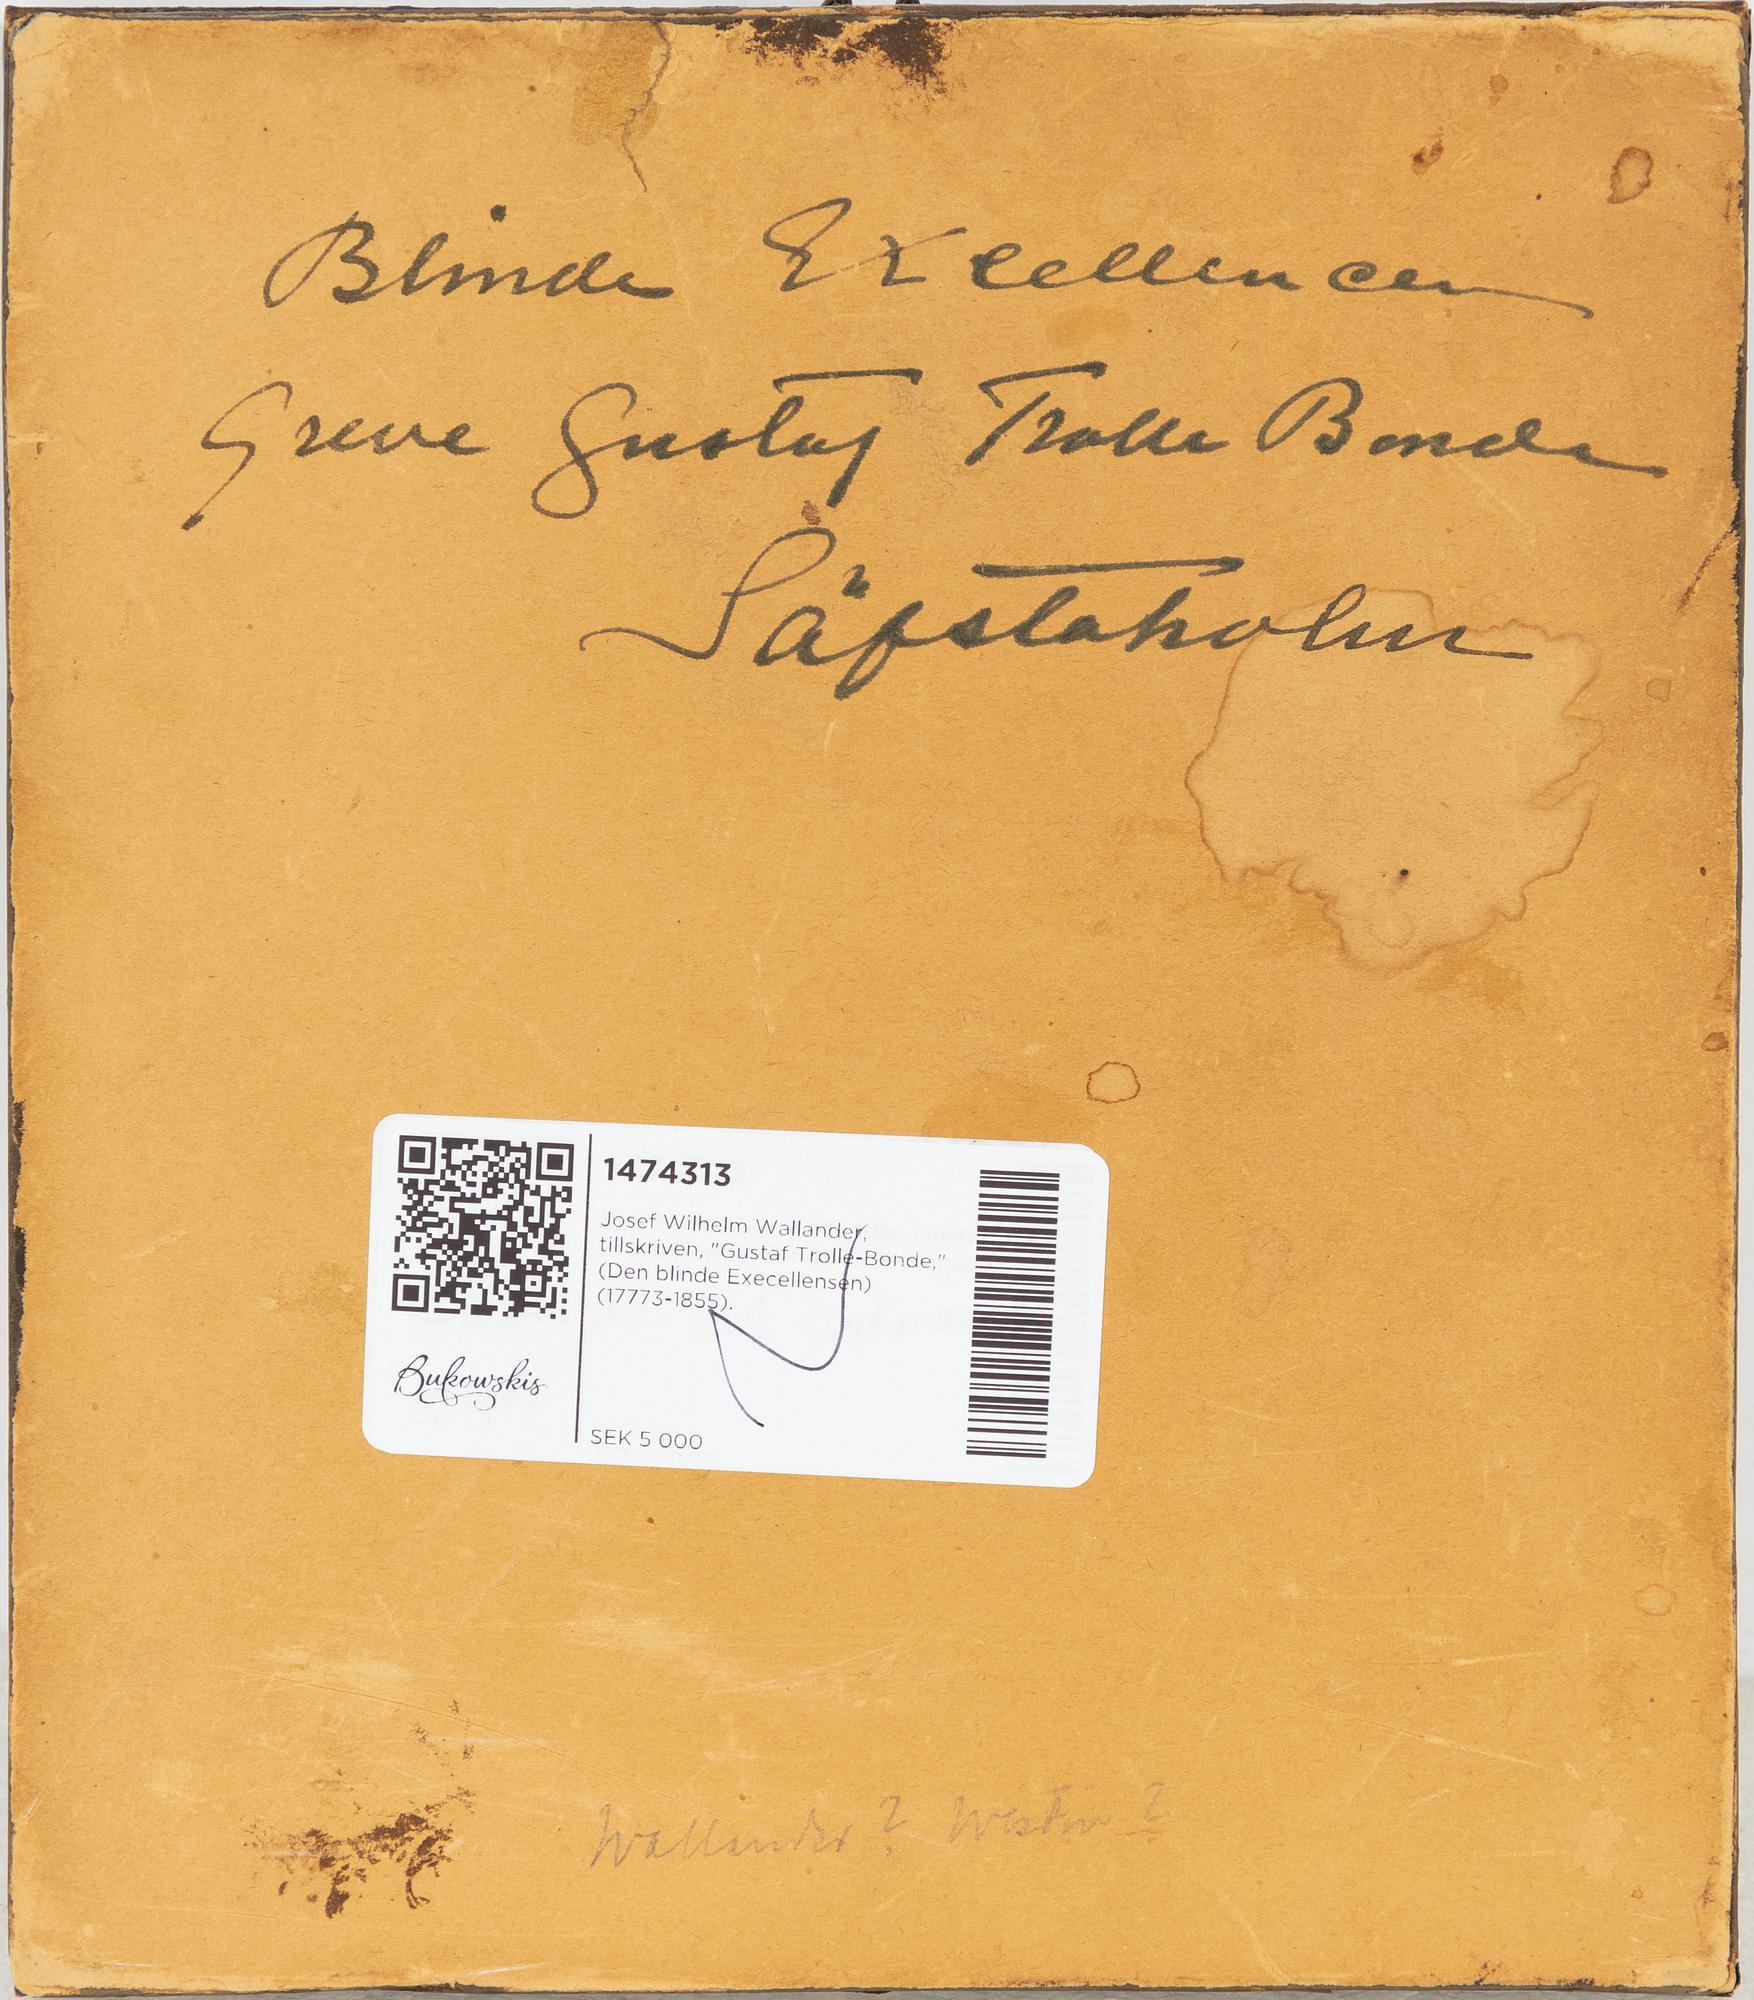 Blinde Excellencen
Greve Gustaf Trolle Bonde
Säfstaholm
1474313
Josef Wilhelm Wallander,
tillskriven, "Gustaf Trolle-Bonde,"
(Den blinde Execellensen)
(17773-1855).
Bukowskis
SEK 5 000
Wallander? Westin?